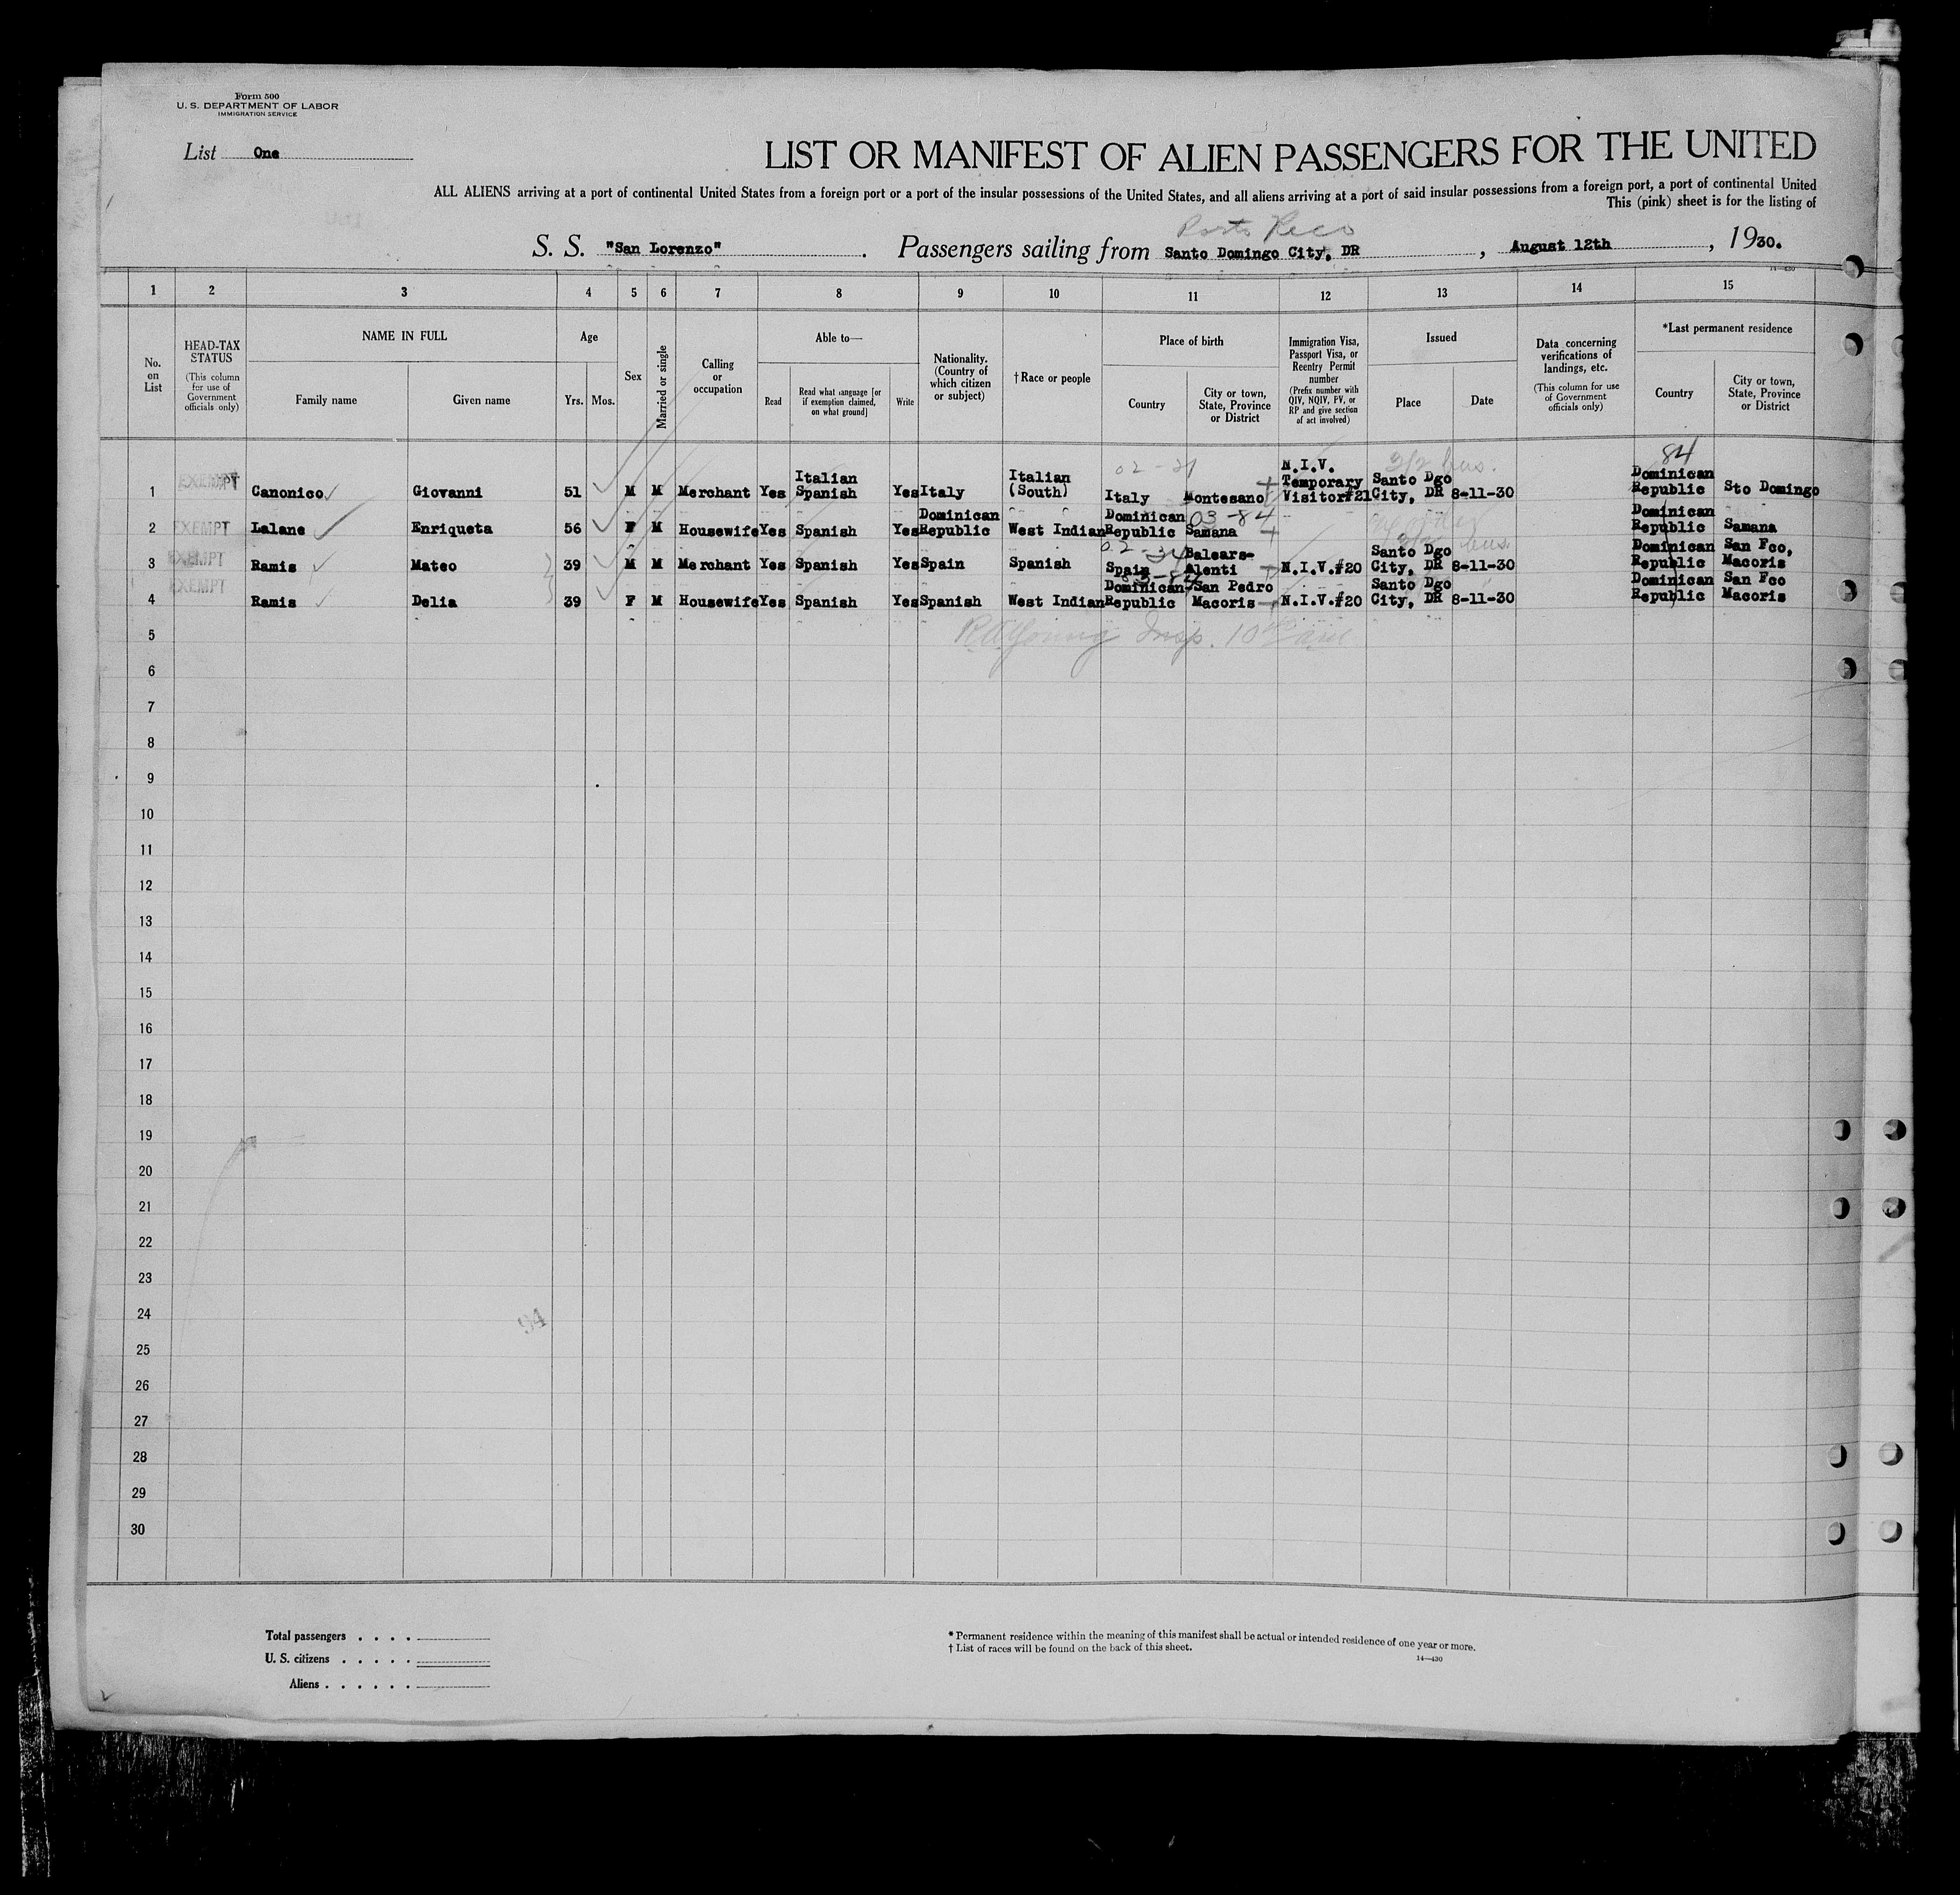 Form 500
U. S. DEPARTMENT OF LABOR
IMMIGRATION SERVICE
List One
LIST OR MANIFEST OF ALIEN PASSENGERS FOR THE UNITED
ALL ALIENS arriving at a port of continental United States from a foreign port or a port of the insular possessions of the United States, and all aliens arriving at a port of said insular possessions from a foreign port, a port of continental United
This (pink) sheet is for the listing of
Porto Rico
S. S. "San Lorenzo" . Passengers sailing from Santo Domingo City, DR , August 12th , 1930.
14—430
1 2 3 4 5 6 7 8 9 10 11 12 13 14 15
No. on List
HEAD-TAX STATUS
(This column for use of Government officials only)
NAME IN FULL
Family name Given name
Age
Yrs. Mos.
Sex
Married or single
Calling or occupation
Able to—
Read
Read what language [or if exemption claimed, on what ground]
Write
Nationality. (Country of which citizen or subject)
†Race or people
Place of birth
Country
City or town, State, Province or District
Immigration Visa, Passport Visa, or Reentry Permit number
(Prefix number with QIV, NQIV, PV, or RP and give section of act involved)
Issued
Place Date
Data concerning verifications of landings, etc.
(This column for use of Government officials only)
*Last permanent residence
Country
City or town, State, Province or District
84
3/2 bus.
1 EXEMPT Canonico Giovanni 51 M M Merchant Yes Italian Spanish Yes Italy Italian (South) Italy Montesano N.I.V. Temporary Visitor#21 Santo Dgo City, DR 8-11-30 Dominican Republic Sto Domingo
03-84
2 EXEMPT Lalane Enriqueta 56 F M Housewife Yes Spanish Yes Dominican Republic West Indian Dominican Republic Samana Dominican Republic Samana
02-34
3/2 bus.
3 EXEMPT Ramis Mateo 39 M M Merchant Yes Spanish Yes Spain Spanish Spain Balears- Alenti N.I.V.#20 Santo Dgo City, DR 8-11-30 Dominican Republic San Fco, Macoris
03-84
4 EXEMPT Ramis Delia 39 F M Housewife Yes Spanish Yes Spanish West Indian Dominican Republic San Pedro Macoris N.I.V.#20 Santo Dgo City, DR 8-11-30 Dominican Republic San Fco Macoris
5
6
7
8
9
10
11
12
13
14
15
16
17
18
19
20
21
22
23
24
94
25
26
27
28
29
30
Total passengers . . . .
U. S. citizens . . . . .
Aliens . . . . . .
* Permanent residence within the meaning of this manifest shall be actual or intended residence of one year or more.
† List of races will be found on the back of this sheet.
14—430